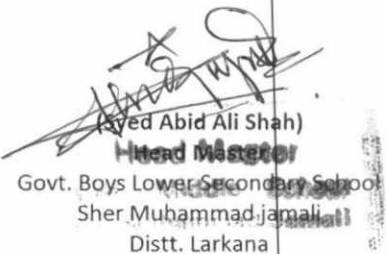 (Syed Abid Ali Shah)
Head Master
Govt. Boys Lower Secondary School
Sher Muhammad jamali
Distt. Larkana